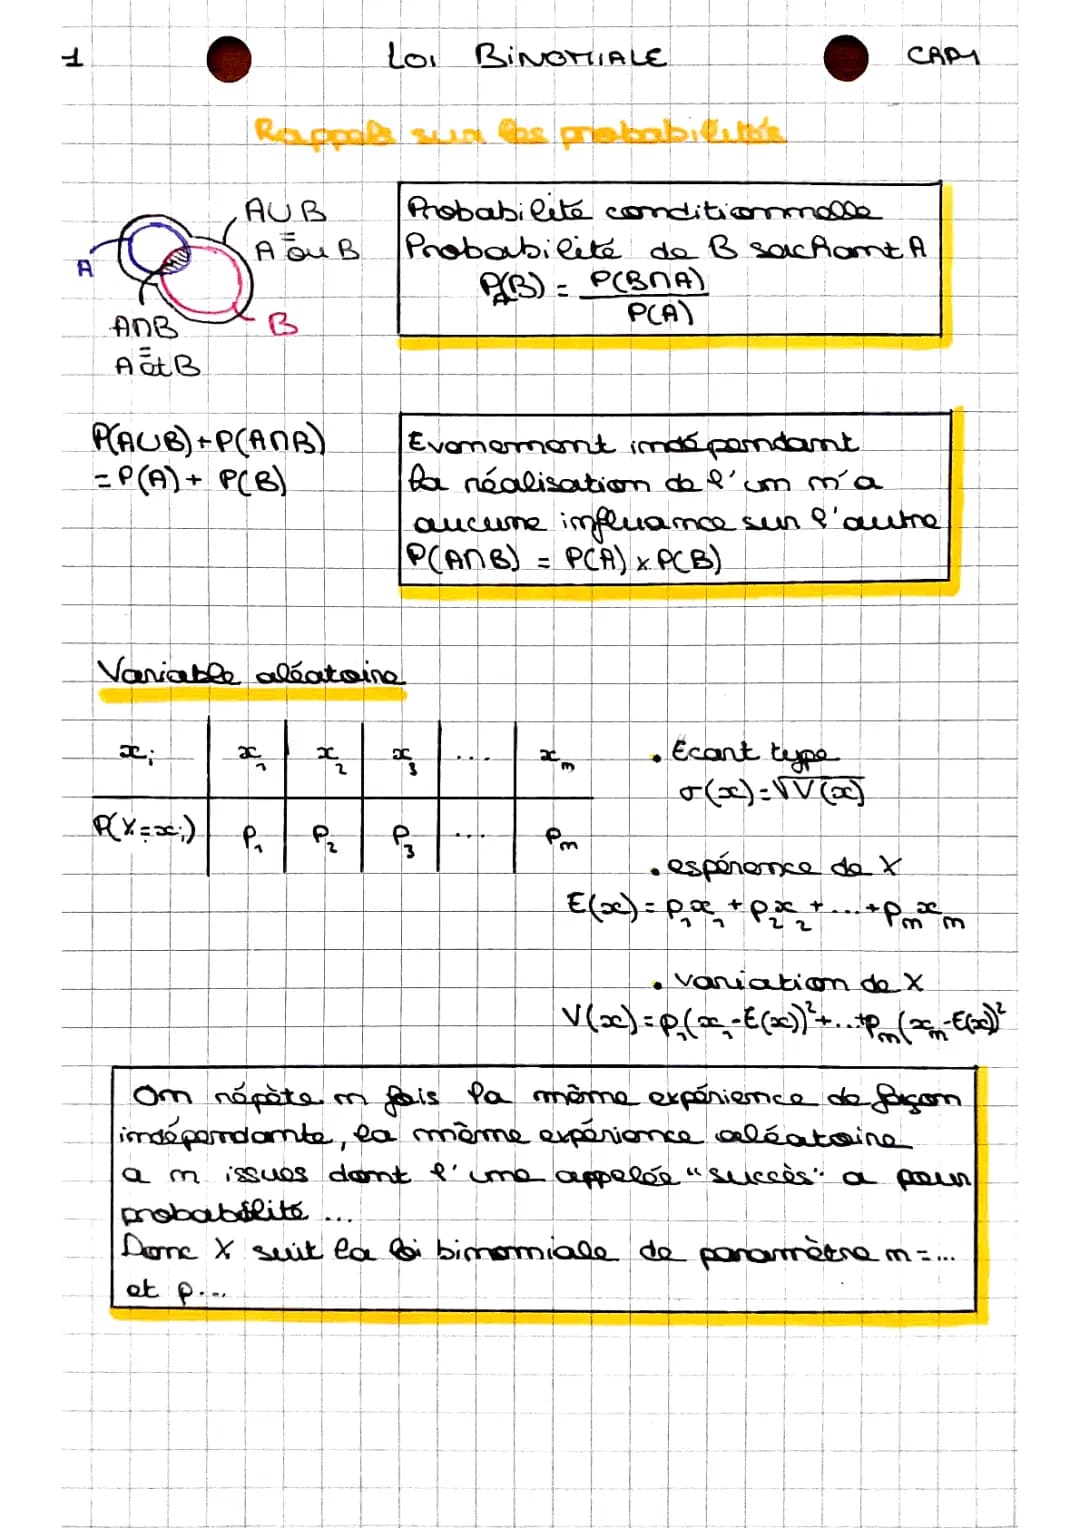 1 LOI BINOMIALE CAP1
Rappels sur les probabilités
A∪B
=
A ou B
A
A∩B
=
A et B
B
Probabilité conditionnelle
Probabilité de B sachant A
P_A(B) = P(B∩A) / P(A)
P(A∪B)+P(A∩B)
= P(A) + P(B)
Evenement indépendant
la réalisation de l'un n'a
aucune influence sur l'autre
P(A∩B) = P(A) x P(B)
Variable aléatoire
x_i x_1 x_2 x_3 ... x_n
P(X=x_i) p_1 p_2 p_3 ... p_n
• Écart type
σ(x)=√V(x)
• espérence de X
E(x) = p_1x_1 + p_2x_2 + ... + p_nx_n
• variation de X
V(x) = p_1(x_1-E(x))²+...+p_n(x_n-E(x))²
On répète n fois la même expérience de façon
indépendante, la même expérience aléatoire
a n issues dont l'une appelée "succès" a pour
probabilité ...
Donc X suit la loi binomiale de paramètre n = ...
et p...